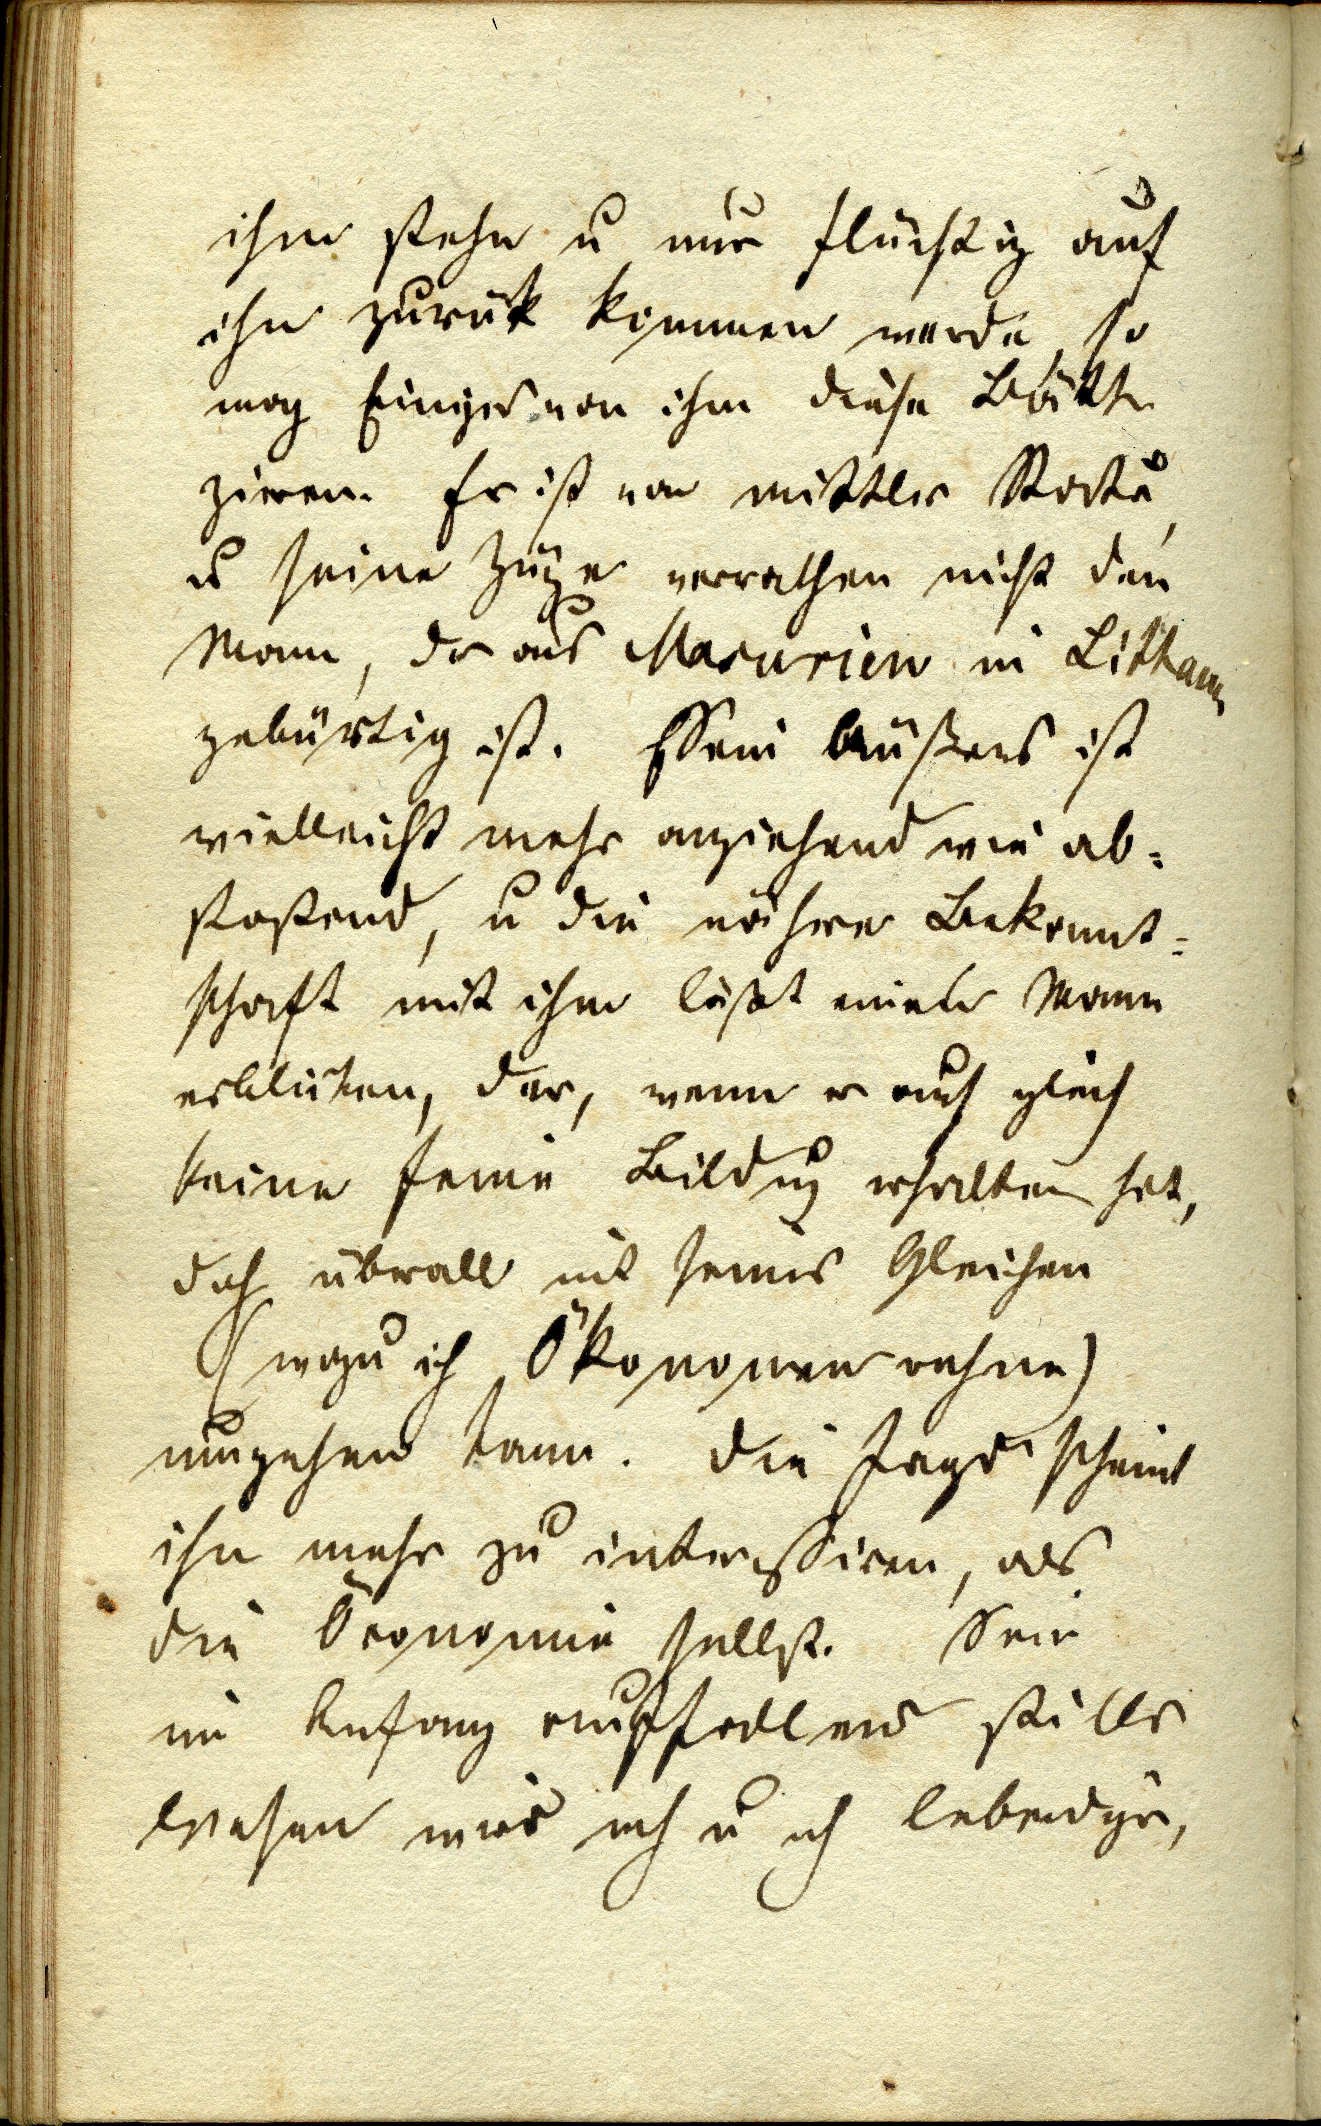 ihm stehn u nur flüchtig auf
ihn zurük kommen werde, so
mag Einiges von ihm diese Blätter
zieren. Er ist von mittler Statur,
u seine Züge verrathen nicht den
Mann, der aus Masurien in Littauen
gebürtig ist. Sein Äußeres ist
vielleicht mehr anziehend wie ab-
stoßend, u die nähere Bekannt-
schaft mit ihm läßt einen Mann
erblicken, der, wenn er auch gleich
keine feine Bildung erhalten hat,
doch überall mit seines Gleichen
(wozu ich Ökonomen rechne)
umgehen kann. Die Jagd scheint
ihn mehr zu interessiren, als
die Öconomie selbst. Sein
im Anfang auffallend stilles
Wesen wird nach u nach lebendiger,